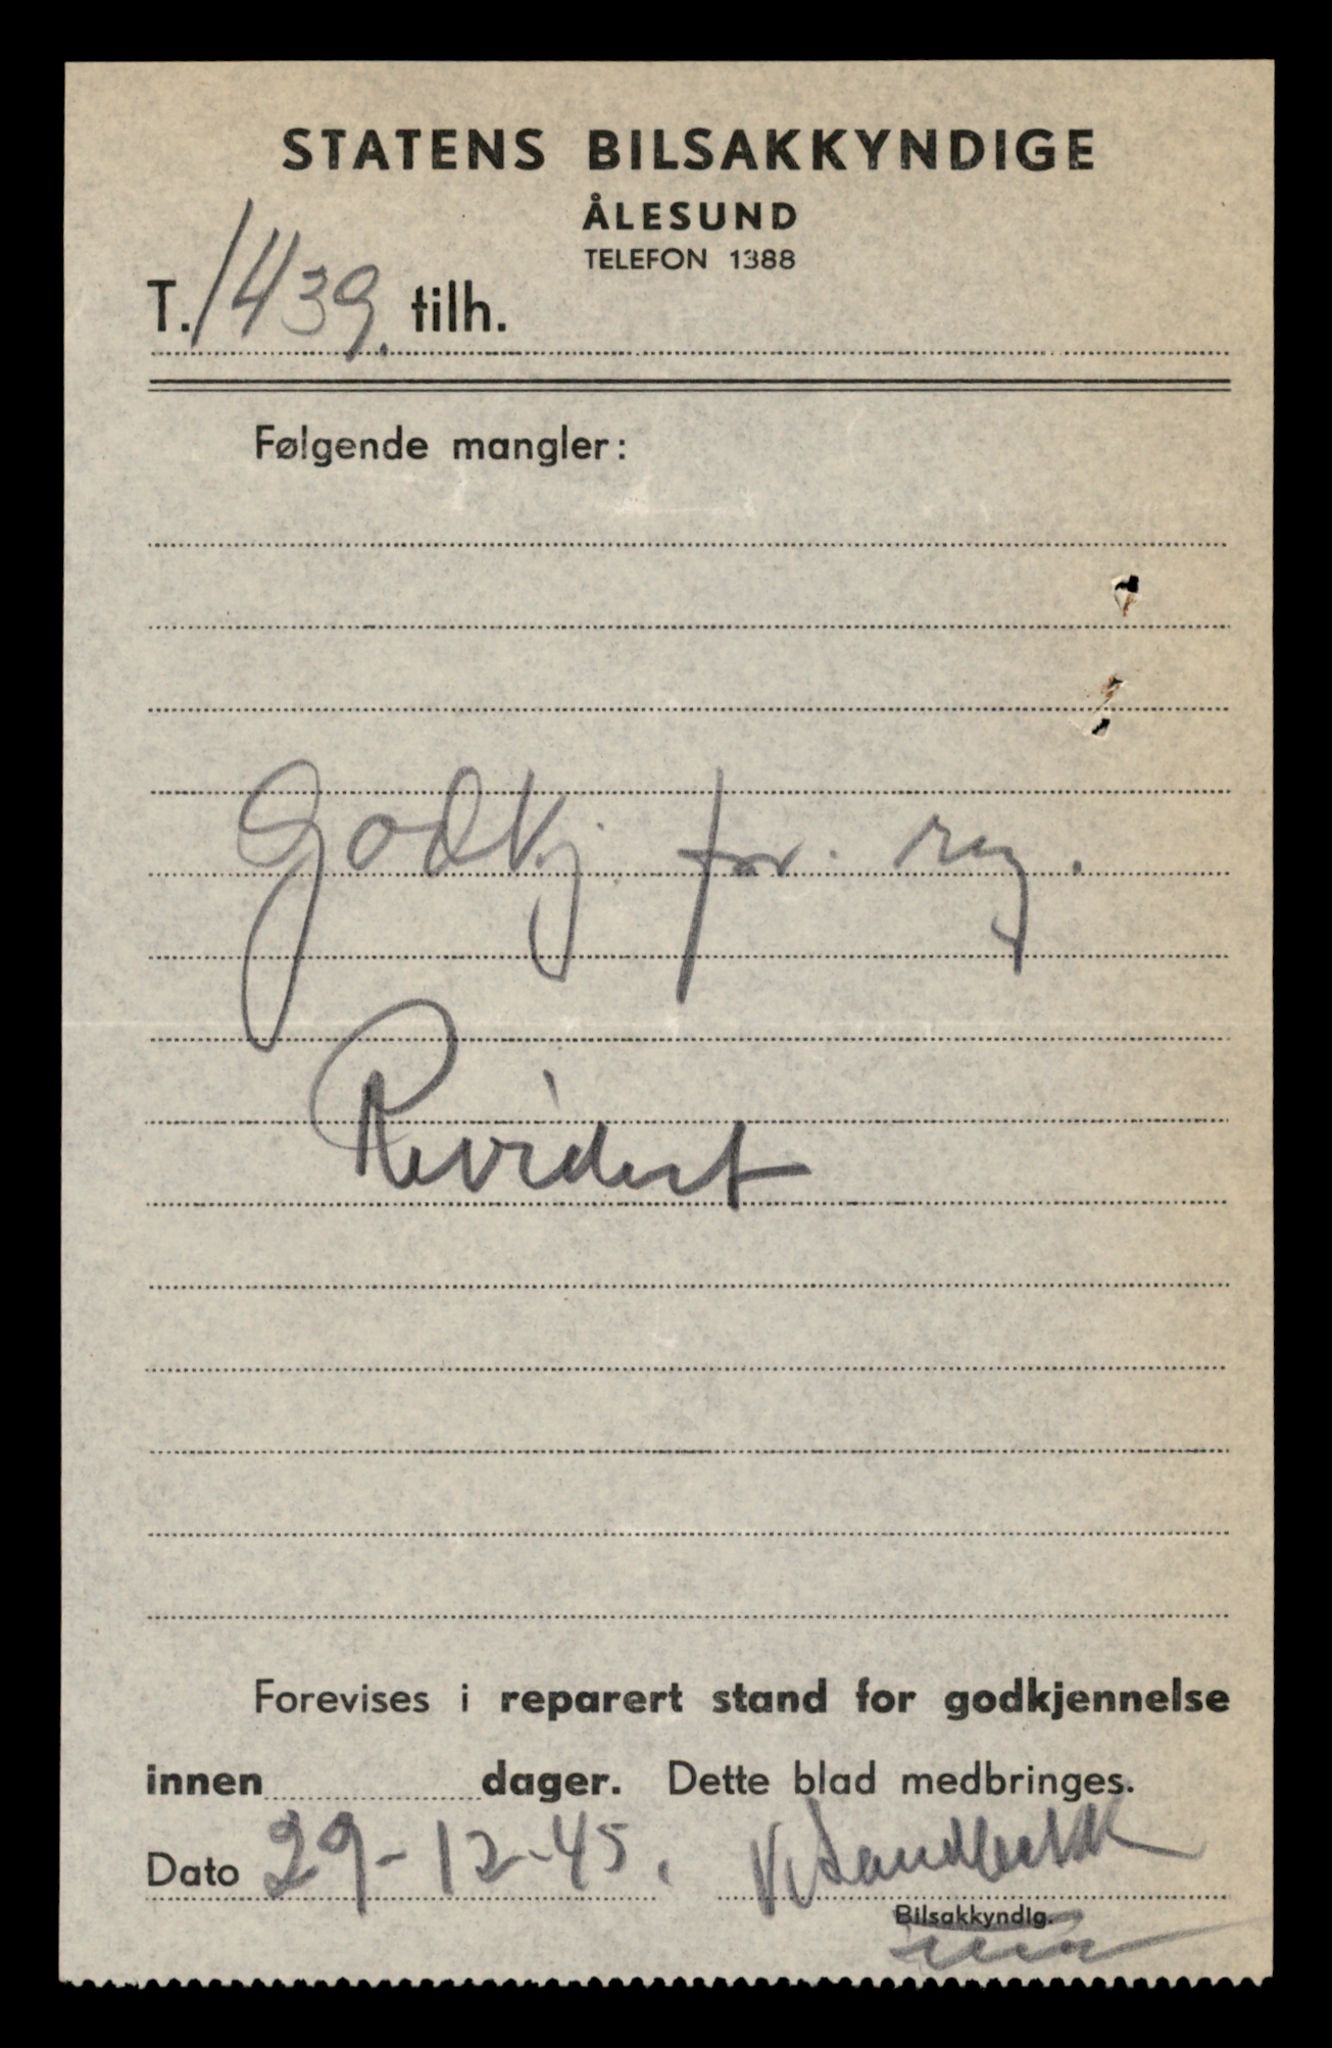 STATENS BILSAKKYNDIGE
ÅLESUND
TELEFON 1388
T. 1439. tilh.
Følgende mangler:
Godkj. for. reg.
Revidert
Forevises i reparert stand for godkjennelse
innen dager. Dette blad medbringes.
Dato 29-12-45.
Bilsakkyndig.